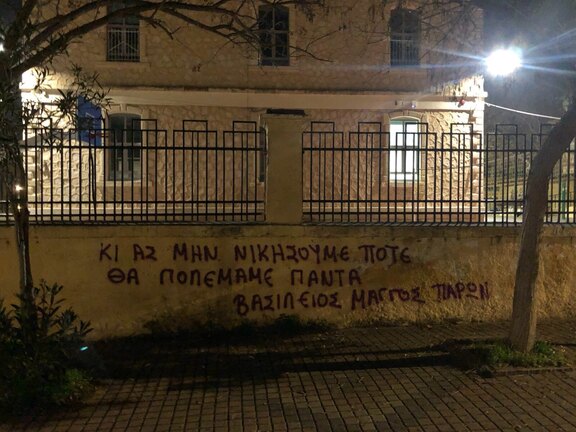 ΚΙ ΑΣ ΜΗΝ ΝΙΚΗΣΟΥΜΕ ΠΟΤΕ
ΘΑ ΠΟΛΕΜΑΜΕ ΠΑΝΤΑ
ΒΑΣΙΛΕΙΟΣ ΜΑΓΓΟΣ ΠΑΡΩΝ